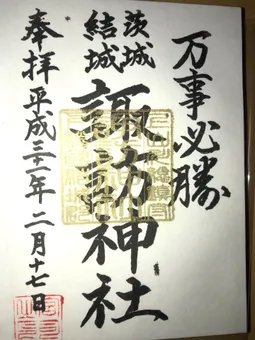 万事必勝
茨城
結城
諏訪神社
奉拝
平成三十一年二月十七日